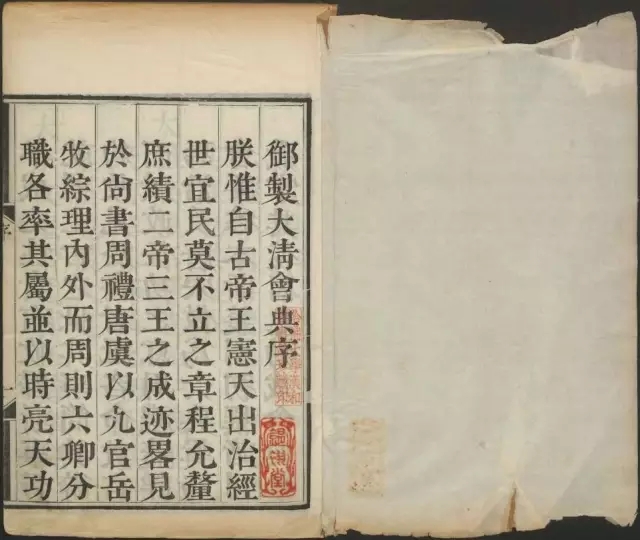 御製大淸會典序
朕惟自古帝王憲天出治經
世宜民莫不立之章程允釐
庶績二帝三王之成迹畧見
於尙書周禮唐虞以九官岳
牧綜理內外而周則六卿分
職各率其屬並以時亮天功